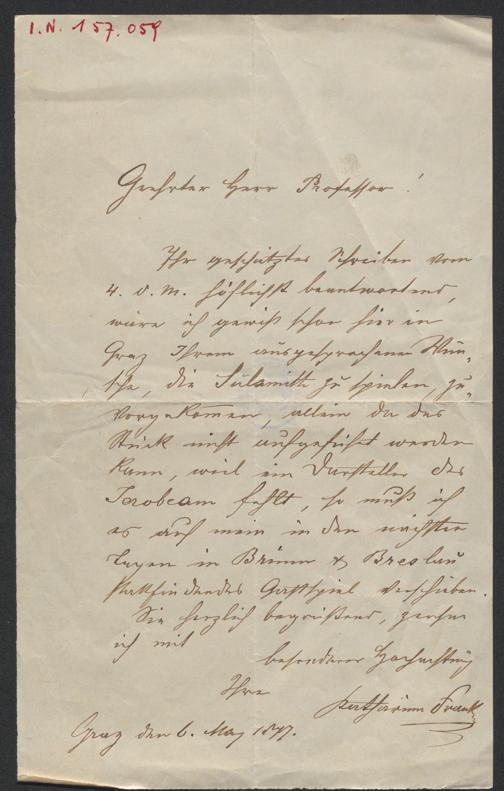 I.N. 157.059
Geehrter Herr Professor!
Ihr geschätztes Schreiben vom
4. d. M. höflichst beantwortend,
wäre ich gewiß schon hier in
Graz Ihrem ausgesprochenen Wun-
sche, die Sulamith zu spielen, zu-
vorgekommen, allein da das
Stück nicht aufgeführt werden
kann, weil ein Darsteller des
Jerobeam fehlt, so muß ich
es auf mein in den nächsten
Tagen in Brünn & Breslau
stattfindendes Gastspiel verschieben.
Sie herzlich begrüßend, zeichne
ich mit
besonderer Hochachtung
Ihre
Katharina Frank
Graz den 6. May 1897.